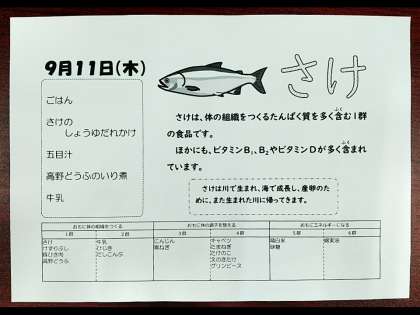 9月11日(木)
ごはん
さけの
しょうゆだれかけ
五目汁
高野どうふのいり煮
牛乳
さけ
さけは、体の組織をつくるたんぱく質を多く含む1群
の食品です。
ほかにも、ビタミンB₁、B₂やビタミンDが多く含まれ
ています。
さけは川で生まれ、海で成長し、産卵のた
めに、また生まれた川に帰ってきます。
おもに体の組織をつくる おもに体の調子を整える おもにエネルギーになる
1群 2群 3群 4群 5群 6群
さけ 牛乳 にんじん キャベツ 精白米
けずりぶし ひじき 葉ねぎ たまねぎ 砂糖
豚ひき肉 だしこんぶ たけのこ
高野どうふ えのきたけ
グリンピース